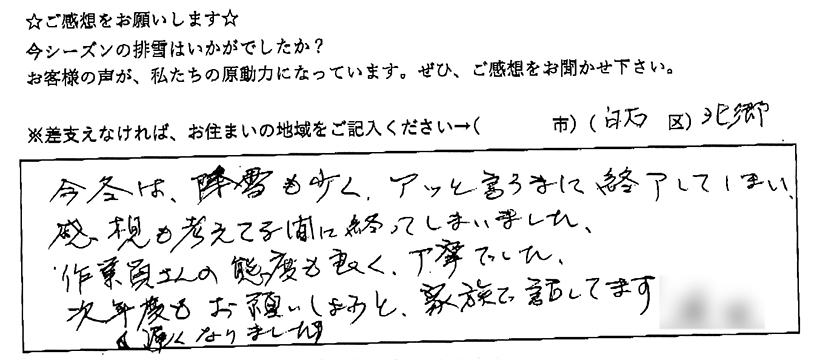 ☆ご感想をお願いします☆
今シーズンの排雪はいかがでしたか？
お客様の声が、私たちの原動力になっています。ぜひ、ご感想をお聞かせ下さい。
※差支えなければ、お住まいの地域をご記入ください→(　　　市)(白石 区)北郷
今冬は、降雪も少く、アッと言うまに終了してしまい、
感想も考えてる間に終ってしまいました、
作業員さんの態度も良く、丁寧でした、
次年度もお願いしようと、家族で話してます
遅くなりました